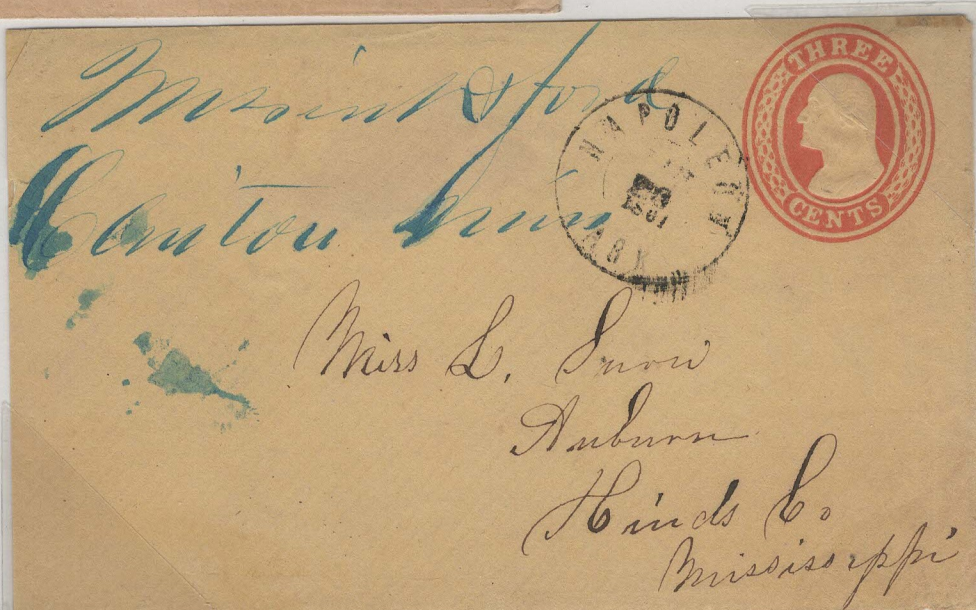 Missint & ford
Canton Miss
NAPOLEON
ARK
THREE
CENTS
Miss L. Snow
Auburn
Hinds Co.
Mississippi